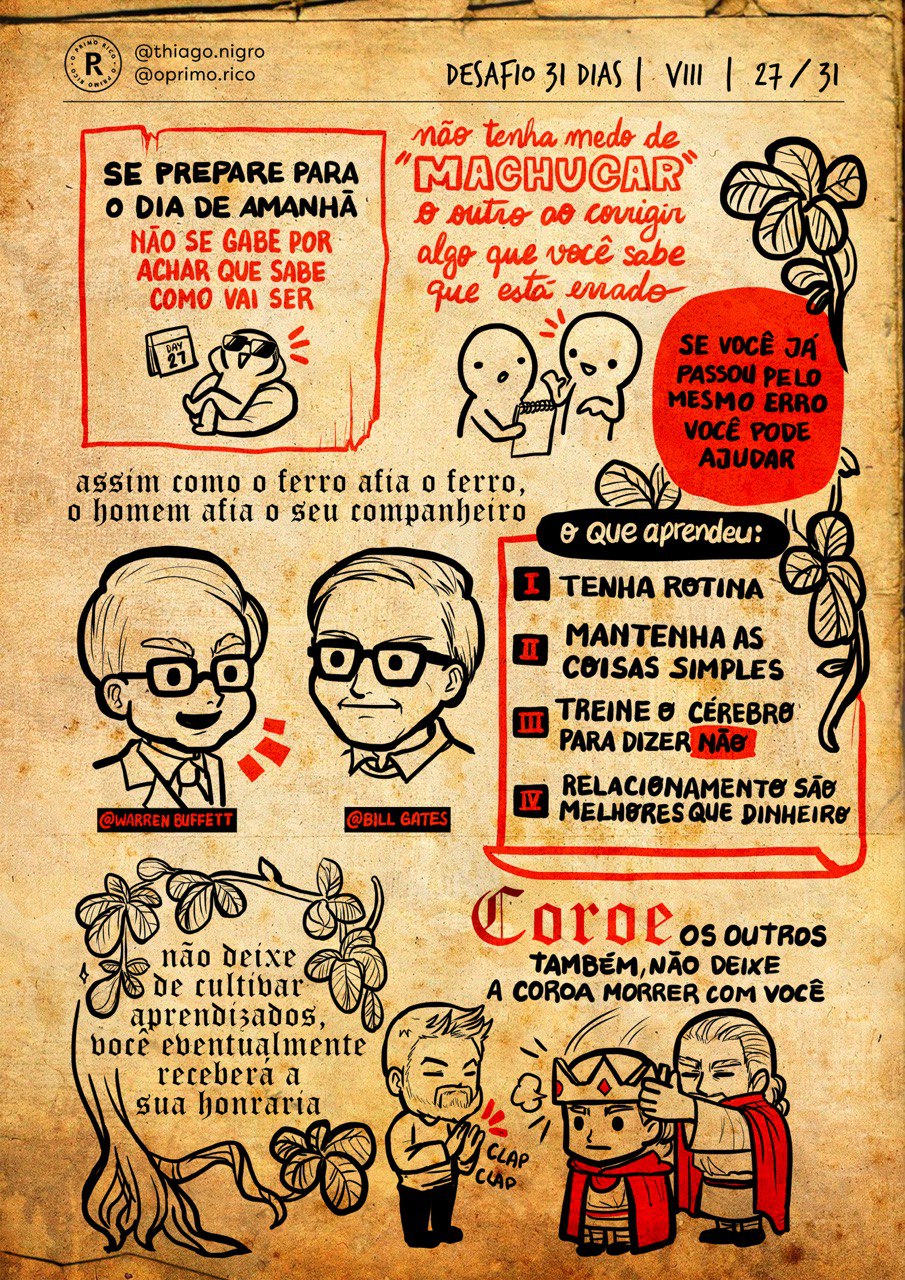 O PRIMO RICO • O PRIMO RICO •
R
@thiago.nigro
@oprimo.rico
DESAFIO 31 DIAS | VIII | 27 / 31
SE PREPARE PARA
O DIA DE AMANHÃ
NÃO SE GABE POR
ACHAR QUE SABE
COMO VAI SER
DAY
27
não tenha medo de
"MACHUCAR"
o outro ao corrigir
algo que você sabe
que está errado
SE VOCÊ JÁ
PASSOU PELO
MESMO ERRO
VOCÊ PODE
AJUDAR
assim como o ferro afia o ferro,
o homem afia o seu companheiro
@WARREN BUFFETT
@BILL GATES
o Que aprendeu:
I TENHA ROTINA
II MANTENHA AS
COISAS SIMPLES
III TREINE O CÉREBRO
PARA DIZER NÃO
IV RELACIONAMENTO SÃO
MELHORES QUE DINHEIRO
não deixe
de cultivar
aprendizados,
você eventualmente
receberá a
sua honraria
Coroe OS OUTROS
TAMBÉM, NÃO DEIXE
A COROA MORRER COM VOCÊ
CLAP
CLAP